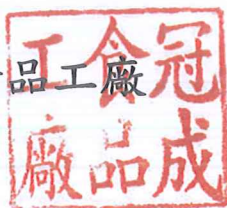 品工廠
冠成
食品
工廠